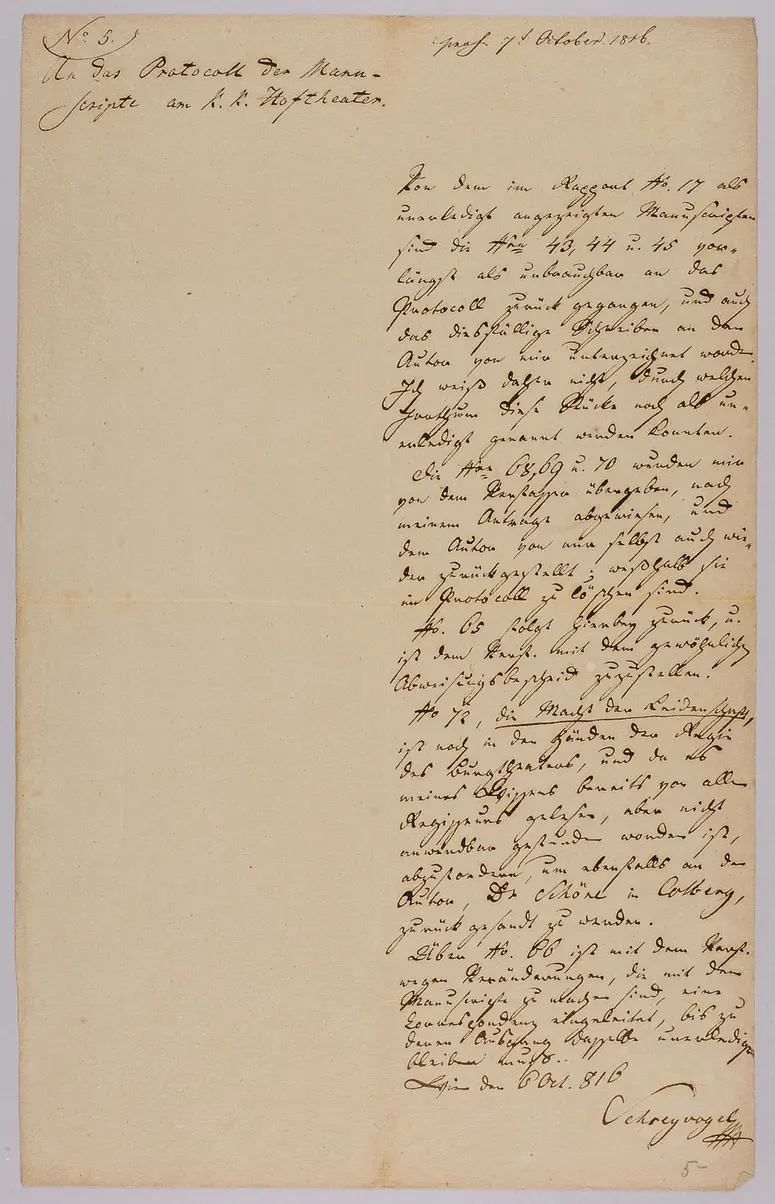 No 5.
praes. 7t October. 1816.
An das Protocoll der Manu-
scripte am k. k. Hoftheater.
Von dem im Rapport No. 17 als
unerledigt angezeigten Manuscripten
sind die Nren 43, 44 u. 45 vor-
längst als unbrauchbar an das
Protocoll zurück gegangen, und auch
das diesfällige Schreiben an den
Autor von mir unterzeichnet worden.
Ich weiß daher nicht, durch welchen
Irrthum diese Stücke noch als un-
erledigt genannt werden konnten.
Die Nren 68, 69 u. 70 wurden mir
von dem Verfasser übergeben, nach
meinem Antrage abgewiesen, und
dem Autor von mir selbst auch wie-
der zurückgestellt; weßhalb sie
im Protocoll zu löschen sind.
No. 65 folgt hierbey zurück, u.
ist dem Verf. mit dem gewöhnlichen
Abweisungsbescheid zuzustellen.
No 72, die Macht der Leidenschaft,
ist noch in den Händen der Regie
des Burgtheaters, und da es
meines Wissens bereits von allen
Regisseurs gelesen, aber nicht
anwendbar gefunden worden ist,
abzufordern, um ebenfalls an den
Autor, Dr Schöne in Colberg,
zurück gesandt zu werden.
Über No. 66 ist mit dem Verf.
wegen Veränderungen, die mit dem
Manuscripte zu machen sind, eine
Correspondenz eingeleitet, bis zu
deren Ausgang dasselbe unerledigt
bleiben muß.
Wien den 6 Oct. 816
Schreyvogel
5-